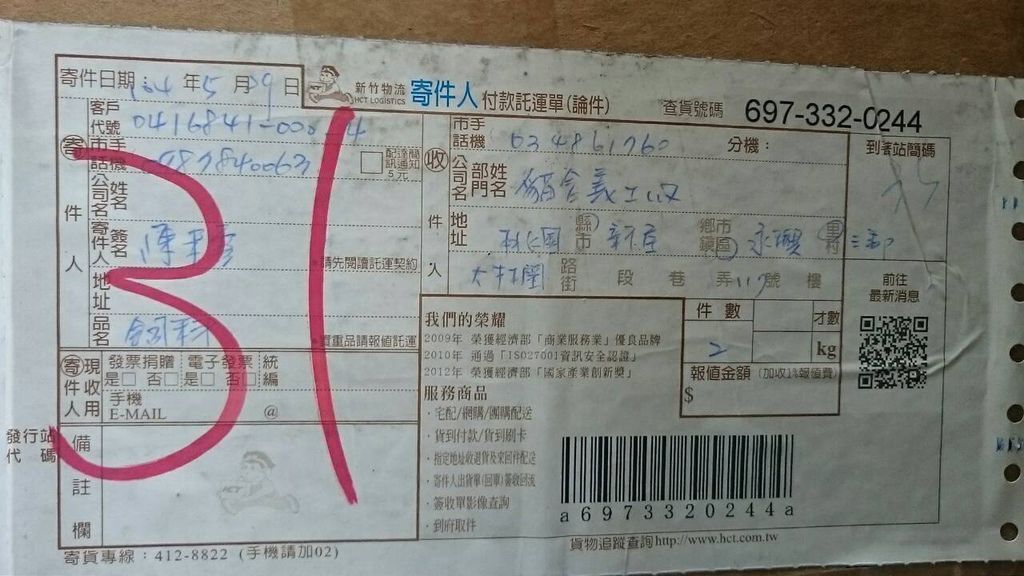 寄件日期 104年5月29日
新竹物流
HCT LOGISTICS
寄件人 付款託運單(論件)
查貨號碼 697-332-0244
客戶代號
市手話機
配達簡訊通知5元
寄件人
公司名 姓名
寄件人簽名
請先閱讀託運契約
地址
品名 飼料
貴重品請報值託運
寄件人 現收用
發票捐贈 是□ 否□
電子發票 是□ 否□
統編
手機
E-MAIL @
發行站代碼
備註欄
寄貨專線：412-8822 (手機請加02)
收件人
市手話機 034861760 分機：
到著站簡碼
公司名 部門 姓名
地址 桃園 縣市 鄉市鎮區 永興 里村 三鄰
路街 段 巷 弄 117號 樓
前往
最新消息
31
我們的榮耀
2009年 榮獲經濟部「商業服務業」優良品牌
2010年 通過「ISO27001資訊安全認證」
2012年 榮獲經濟部「國家產業創新獎」
服務商品
·宅配/網購/團購配送
·貨到付款/貨到刷卡
·指定地址收退貨及來回件配送
·寄件人出貨單(回單)簽收回流
·簽收單影像查詢
·到府取件
件數 2
才數
kg
報值金額 (加收1%報值費)
$
a6973320244a
貨物追蹤查詢http://www.hct.com.tw